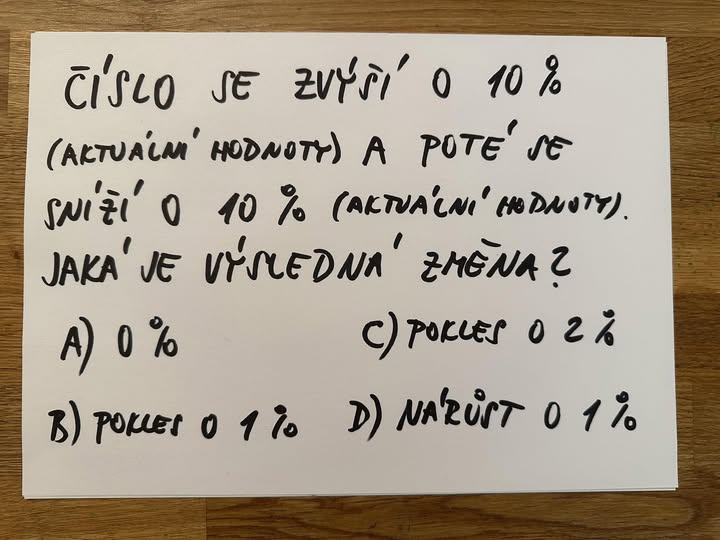 ČÍSLO SE ZVÝŠÍ O 10 %
(AKTUÁLNÍ HODNOTY) A POTÉ SE
SNÍŽÍ O 10 % (AKTUÁLNÍ HODNOTY).
JAKÁ JE VÝSLEDNÁ ZMĚNA?
A) 0 %
C) POKLES O 2 %
B) POKLES O 1 %
D) NÁRŮST O 1 %